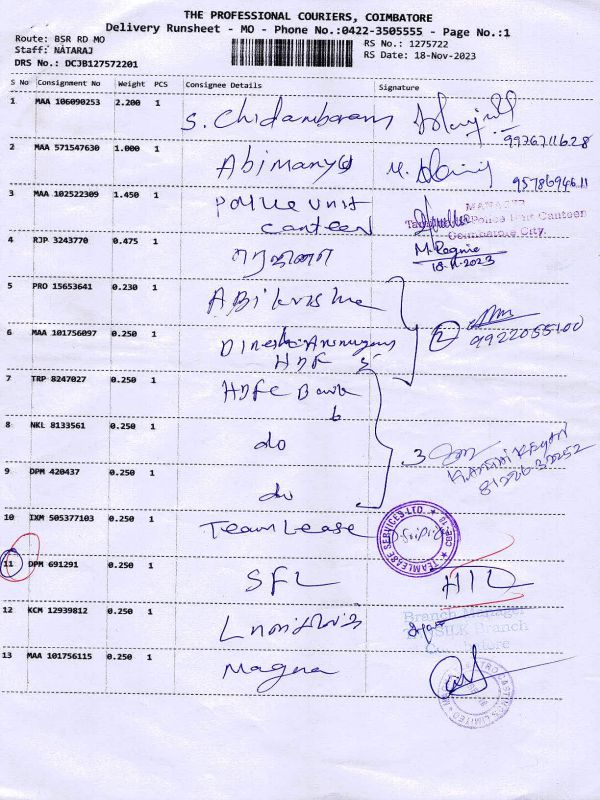 THE PROFESSIONAL COURIERS, COIMBATORE
Delivery Runsheet - MO - Phone No.:0422-3505555 - Page No.:1
Route: BSR RD MO
RS No.: 1275722
Staff: NATARAJ
RS Date: 18-Nov-2023
DRS No.: DCJB127572201
S No Consignment No Weight PCS Consignee Details Signature
1 MAA 106090253 2.200 1 S. Chidambaram
9976711628
2 MAA 571547630 1.000 1 Abimanyu
9578694611
3 MAA 102522309 1.450 1 Police unit
canteen
MANAGER
Police Unit Canteen
Coimbatore City
4 RJP 3243770 0.475 1
18.11.2023
5 PRO 15653641 0.230 1 ABikrishna
2 9922055100
6 MAA 101756097 0.250 1 Dinesh Arumugam
HDF 5
7 TRP 8247027 0.250 1 HDFC Bank
6
8 NKL 8133561 0.250 1 do
3
8122632252
9 DPM 420437 0.250 1 do
10 IXM 505377103 0.250 1 TeamLease
TEAMLEASE SERVICES LTD. ★ CBE-18 ★
11 DPM 691291 0.250 1 SFL
12 KCM 12939812 0.250 1
Branch Manager
Branch
Coimbatore
13 MAA 101756115 0.250 1 Magna